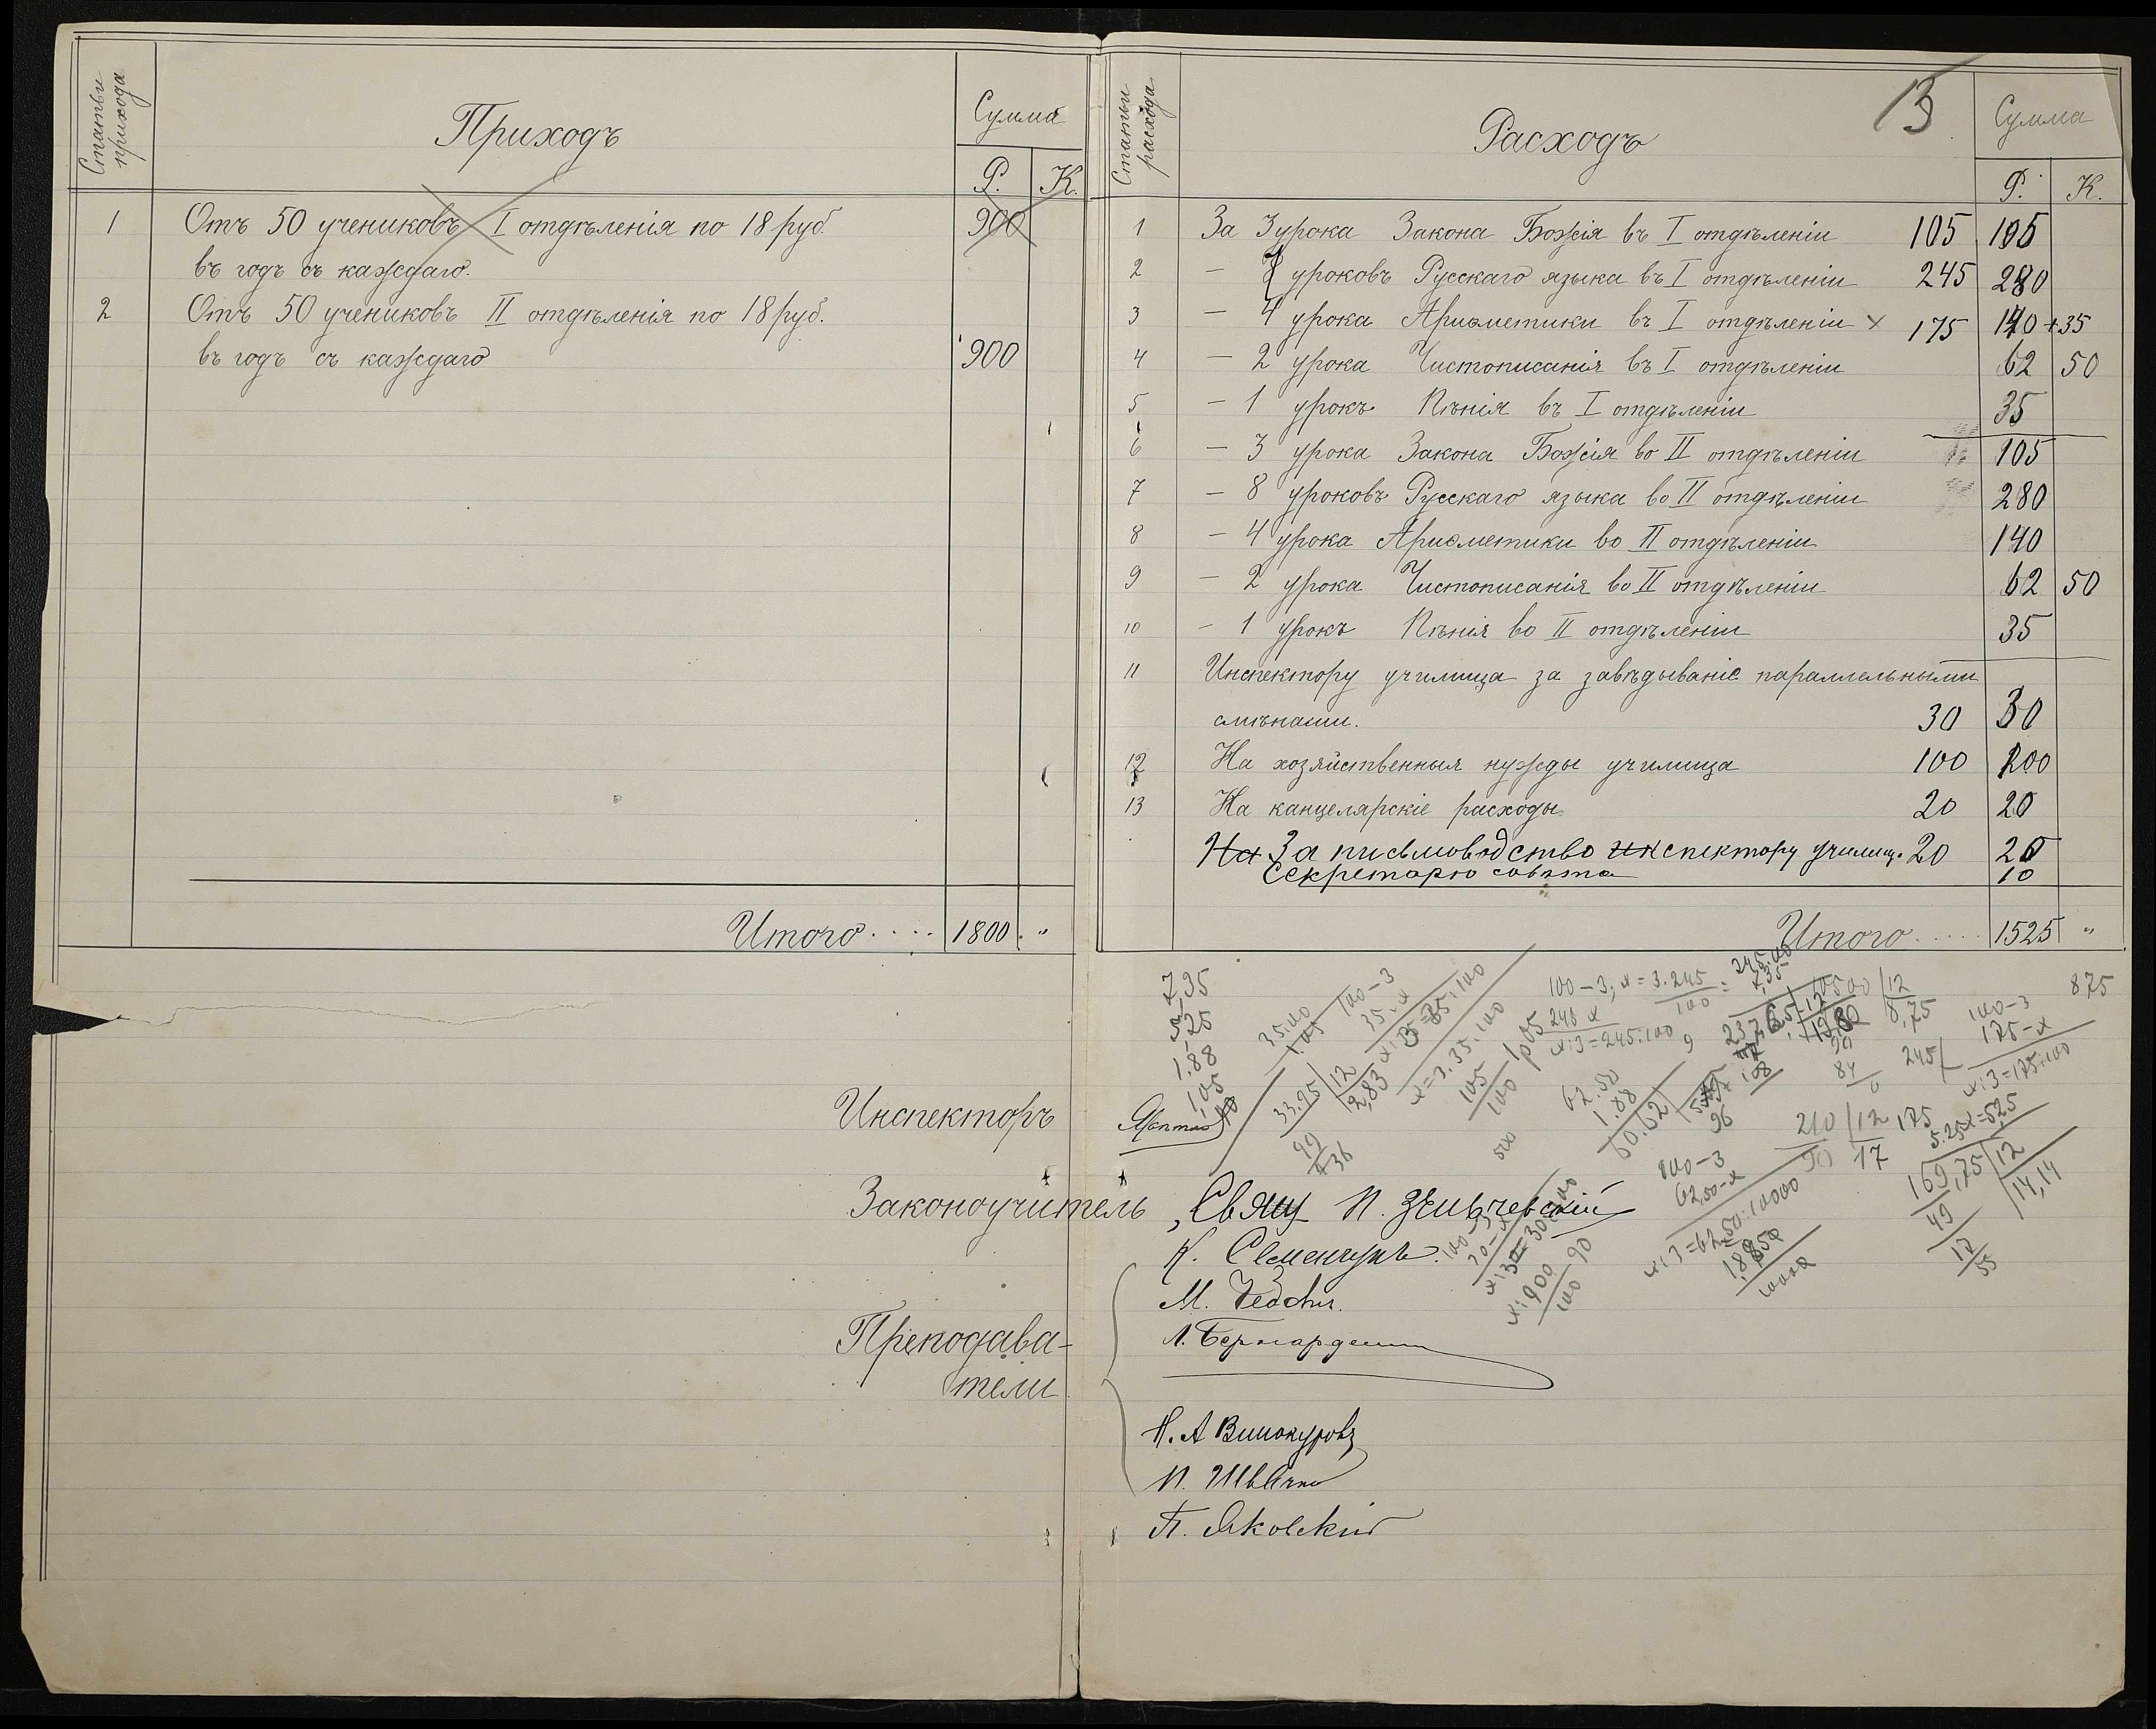 Статьи прихода
Приходъ
Сумма
Р. К.
1 Отъ 50 учениковъ I отдѣленія по 18 руб. 900
въ годъ съ каждаго.
2 Отъ 50 учениковъ II отдѣленія по 18 руб.
въ годъ съ каждаго 900
Итого .... 1800 "
Статьи расхода
Расходъ
13
Сумма
Р. К.
1 За 3 урока Закона Божія въ I отдѣленіи 105 105
2 — уроковъ Русскаго языка въ I отдѣленіи 245 280
3 — 4 урока Ариѳметики въ I отдѣленіи × 175 140 +35
4 — 2 урока Чистописанія въ I отдѣленіи 62 50
5 — 1 урокъ Пѣнія въ I отдѣленіи 35
6 — 3 урока Закона Божія во II отдѣленіи 105
7 — 8 уроковъ Русскаго языка во II отдѣленіи 280
8 — 4 урока Ариѳметики во II отдѣленіи 140
9 — 2 урока Чистописанія во II отдѣленіи 62 50
10 — 1 урокъ Пѣнія во II отдѣленіи 35
11 Инспектору училища за завѣдываніе параллельными
смѣнами. 30 30
12 На хозяйственныя нужды училища 100 200
13 На канцелярскіе расходы 20 20
На За письмоводство инспектору училищ. 20 20
Секретарю совѣта 10
Итого ..... 1525 "
7,35
5,25
1.88
1,05
35.00
100-3
35-x
x:3=35:100
x=3.35.100
105
100
33.95 | 12
2,83
99
36
100-3; x=3.245
100
x:3=245:100
245.00
7,35
10500 | 12
8,75
84
245
875
100-3
175-x
x:3=175:100
62.50
1.88
60.62
96
500
210 | 12
90 17
175
5.25
169,75 | 12
14,14
49
17
55
100-3
62,50-x
x:3=62,50:10000
10000
90
900
100
Инспекторъ
Законоучитель Свящ П.
К. Семенчукъ.
Преподава-
тели
М.
Л. Бернардешин
Н. А Винокуровъ
И. Швачко
П. Яковскій